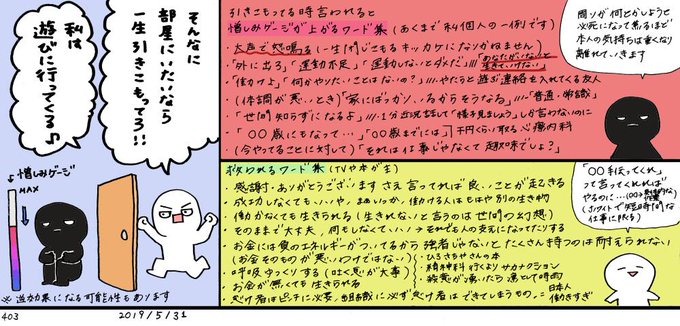 そんなに
部屋にいたいなら
一生引きこもってろ!!
私は
遊びに行ってくる♪
↓憎しみゲージ
MAX
※逆効果になる可能性もあります
403
2019/5/31
引きこもってる時言われると
憎しみゲージが上がるワード集(あくまで私個人の一例です)
・大声で怒鳴る(一生閉じこもるキッカケになりかねません)
・「外に出ろ」「運動不足」「運動しないとダメだ」
「あなたがいないと生きていけない」
・「働けよ」「何かやりたいことはないの?」
やたらと遊ぶ連絡を入れてくる友人
・(体調が悪いとき)「家にばっかりいるからそうなる」「普通・常識」
・「世間知らずになるよ」
1分位世話して「様子見ましょう」しか言わないのに
・「〇〇歳にもなって…」「〇〇歳までには」
千円くらい取る心療内科
・(今やってることに対して)「それは仕事じゃなくて趣味でしょ?」
周りが何とかしようと
必死になって焦るほど
本人の気持ちは重くなり
離れていきます
救われるワード集(TVや本が主)
・感謝・ありがとうございますさえ言ってれば良いことが起きる
・成功しなくてもいいや、まぁいっか、働ける人はもはや別の生き物
・働かなくても生きられる(生きれないと言うのは世間の幻想)
・そのままで大丈夫、何もしなくていい→それでも人の支えになってたりする
・お金には負のエネルギーがついてるから強者じゃないとたくさん持つのは耐えられない
(お金そのものが悪いわけではない)
・呼吸ゆっくりする(吐く息が大事)
・お金が無くても生きられる
・ひろさちやさんの本
・精神科行くよりサカナクション
・殺意が湧いたら逃げて時効
・怠け者はピンチに必要、出組織に必ず怠け者はできてしまうもの。
日本人
働きすぎ
「〇〇手伝ってくれ」
って言ってくれれば
やるのに…
(ホワイトで短時間な
仕事に限る)